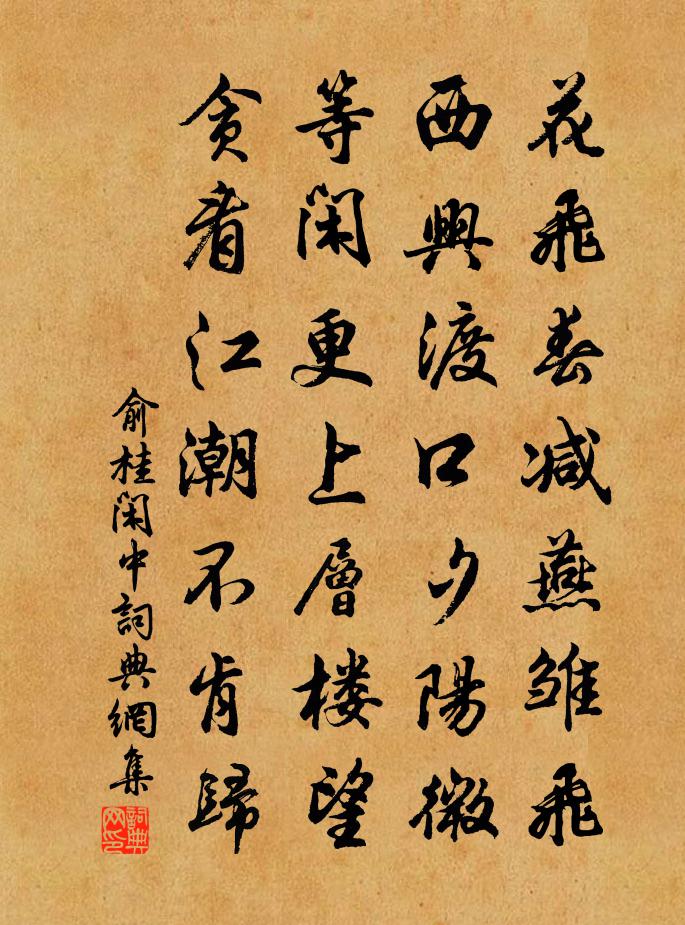 花飛春減燕雏飛
西興渡口夕陽微
等閑更上層楼望
贪看江潮不肯歸
俞桂閑中詞典網集
詞典网印